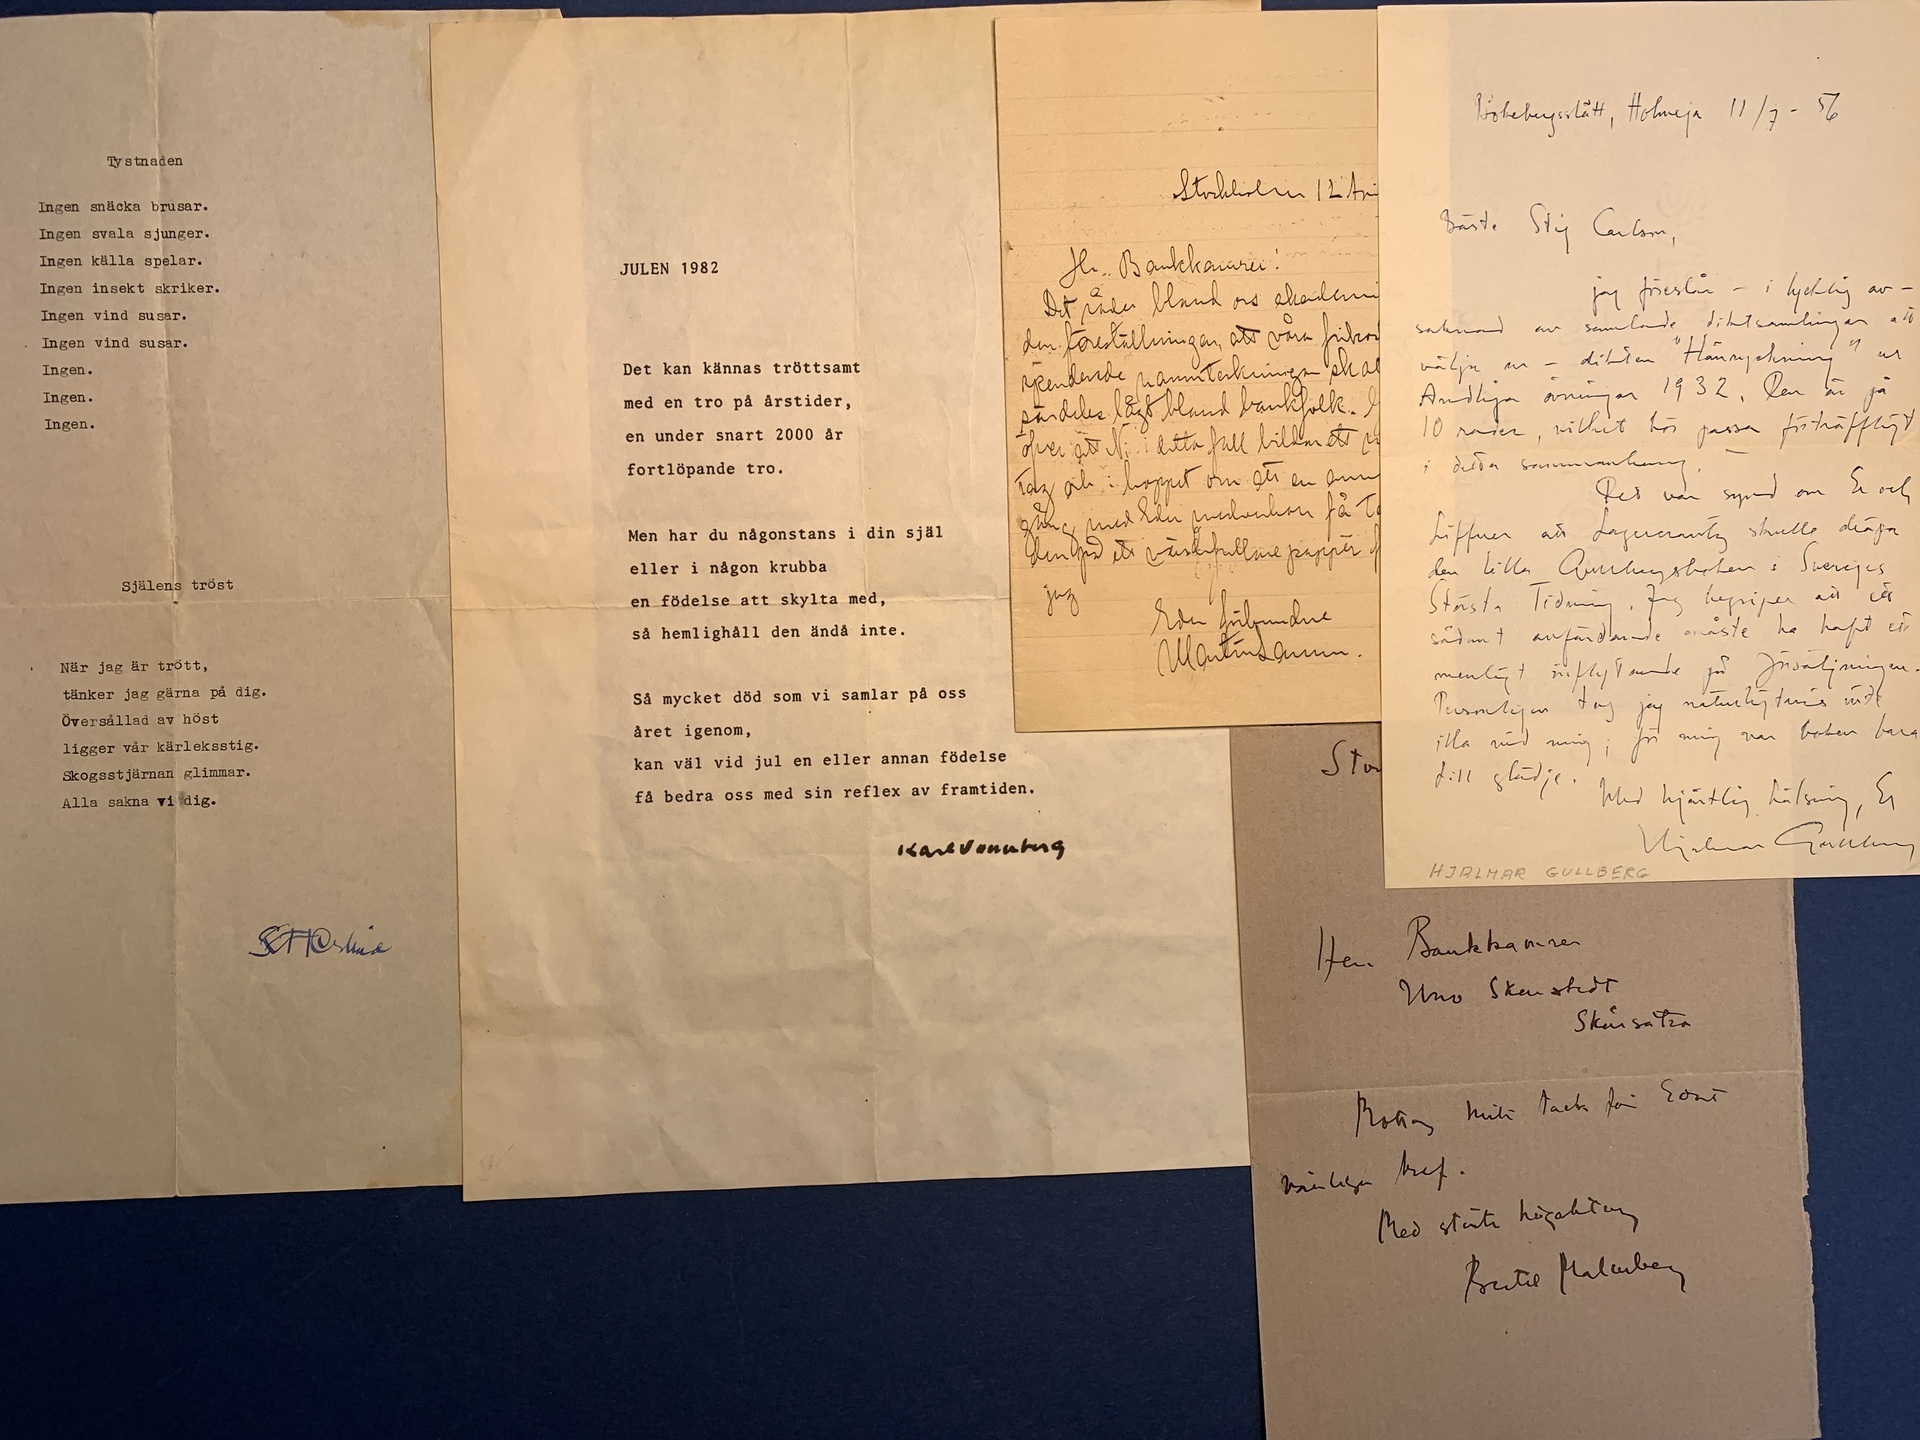 Tystnaden
Ingen snäcka brusar.
Ingen svala sjunger.
Ingen källa spelar.
Ingen insekt skriker.
Ingen vind susar.
Ingen vind susar.
Ingen.
Ingen.
Ingen.
Själens tröst
När jag är trött,
tänker jag gärna på dig.
Översållad av höst
ligger vår kärleksstig.
Skogsstjärnan glimmar.
Alla sakna vi dig.
JULEN 1982
Det kan kännas tröttsamt
med en tro på årstider,
en under snart 2000 år
fortlöpande tro.
Men har du någonstans i din själ
eller i någon krubba
en födelse att skylta med,
så hemlighåll den ändå inte.
Så mycket död som vi samlar på oss
året igenom,
kan väl vid jul en eller annan födelse
få bedra oss med sin reflex av framtiden.
Karl Vennberg
Stockholm 12
Hr. Bankkamrer!
Det råder bland oss
den föreställningen, att våra
namnteckningar
särdeles lågt bland bankfolk.
över att Ni i detta fall bildar ett
tag och i hoppet om att en
gång med Eder medverkan få
den på ett värdefullare papper
jag
Eder förbundne
Martin Lamm.
Bökebergsslätt, Holmeja 11/7 - 56
Bäste Stig Carlson,
jag föreslår - i lycklig av-
saknad av samlade diktsamlingar att
välja ur - dikten "Hänryckning" ur
Andliga övningar 1932. Den är på
10 rader, vilket bör passa förträffligt
i detta sammanhang.
Det var synd om Er och
att Lagercrantz skulle dräpa
den lilla i Sveriges
Största Tidning. Jag begriper att ett
sådant anförande måste ha haft ett
menligt inflytande på försäljningen.
Personligen tog jag naturligtvis inte
illa vid mig; för mig var boken bara
till glädje.
Med hjärtlig hälsning, Er
Hjalmar Gullberg
HJALMAR GULLBERG
Sto
Herr Bankkamrer
Uno Skenstedt
Skärsätra
Mottag mitt tack för Edert
vänliga bref.
Med största högaktning
Bertil Malmberg